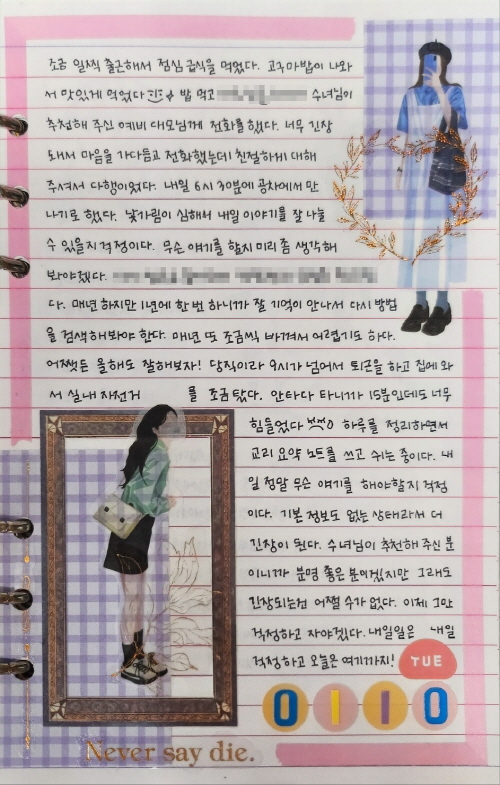 조금 일찍 출근해서 점심 급식을 먹었다. 고구마밥이 나와
서 맛있게 먹었다 밥 먹고 수녀님이
추천해 주신 예비 대모님께 전화를 했다. 너무 긴장
돼서 마음을 가다듬고 전화했는데 친절하게 대해
주셔서 다행이었다. 내일 6시 30분에 공차에서 만
나기로 했다. 낯가림이 심해서 내일 이야기를 잘 나눌
수 있을지 걱정이다. 무슨 얘기를 할지 미리 좀 생각해
봐야겠다.
다. 매년 하지만 1년에 한 번 하니까 잘 기억이 안나서 다시 방법
을 검색해봐야 한다. 매년 또 조금씩 바껴서 어렵기도 하다.
어쨌든 올해도 잘해보자! 당직이라 9시가 넘어서 퇴근을 하고 집에 와
서 실내 자전거 를 조금 탔다. 안타다 타니까 15분인데도 너무
힘들었다 하루를 정리하면서
교리 요약 노트를 쓰고 쉬는 중이다. 내
일 정말 무슨 얘기를 해야할지 걱정
이다. 기본 정보도 없는 상태라서 더
긴장이 된다. 수녀님이 추천해 주신 분
이니까 분명 좋은 분이겠지만 그래도
긴장되는건 어쩔 수가 없다. 이제 그만
걱정하고 자야겠다. 내일일은 내일
걱정하고 오늘은 여기까지!
TUE
0110
Never say die.